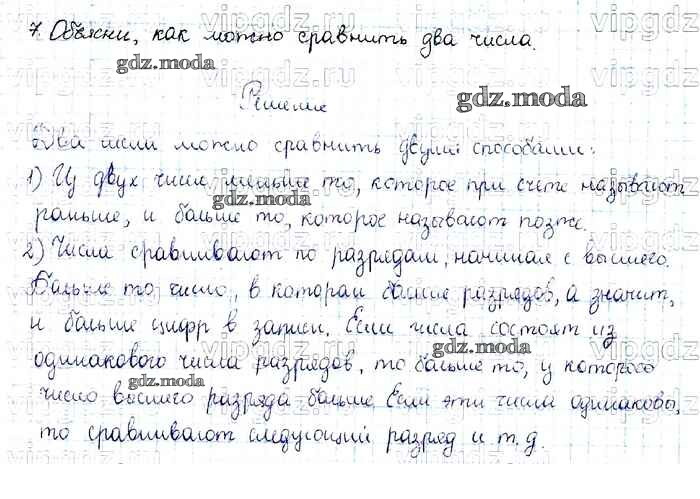 7. Объясни, как можно сравнить два числа.
Решение
Два числа можно сравнить двумя способами:
1) Из двух чисел меньше то, которое при счете называют
раньше, и больше то, которое называют позже.
2) Числа сравнивают по разрядам, начиная с высшего.
Больше то число, в котором больше разрядов, а значит,
и больше цифр в записи. Если числа состоят из
одинакового числа разрядов, то больше то, у которого
число высшего разряда больше. Если эти числа одинаковы,
то сравнивают следующий разряд и т.д.
gdz.moda
gdz.moda
gdz.moda
gdz.moda
gdz.moda
gdz.moda
vipgdz.ru